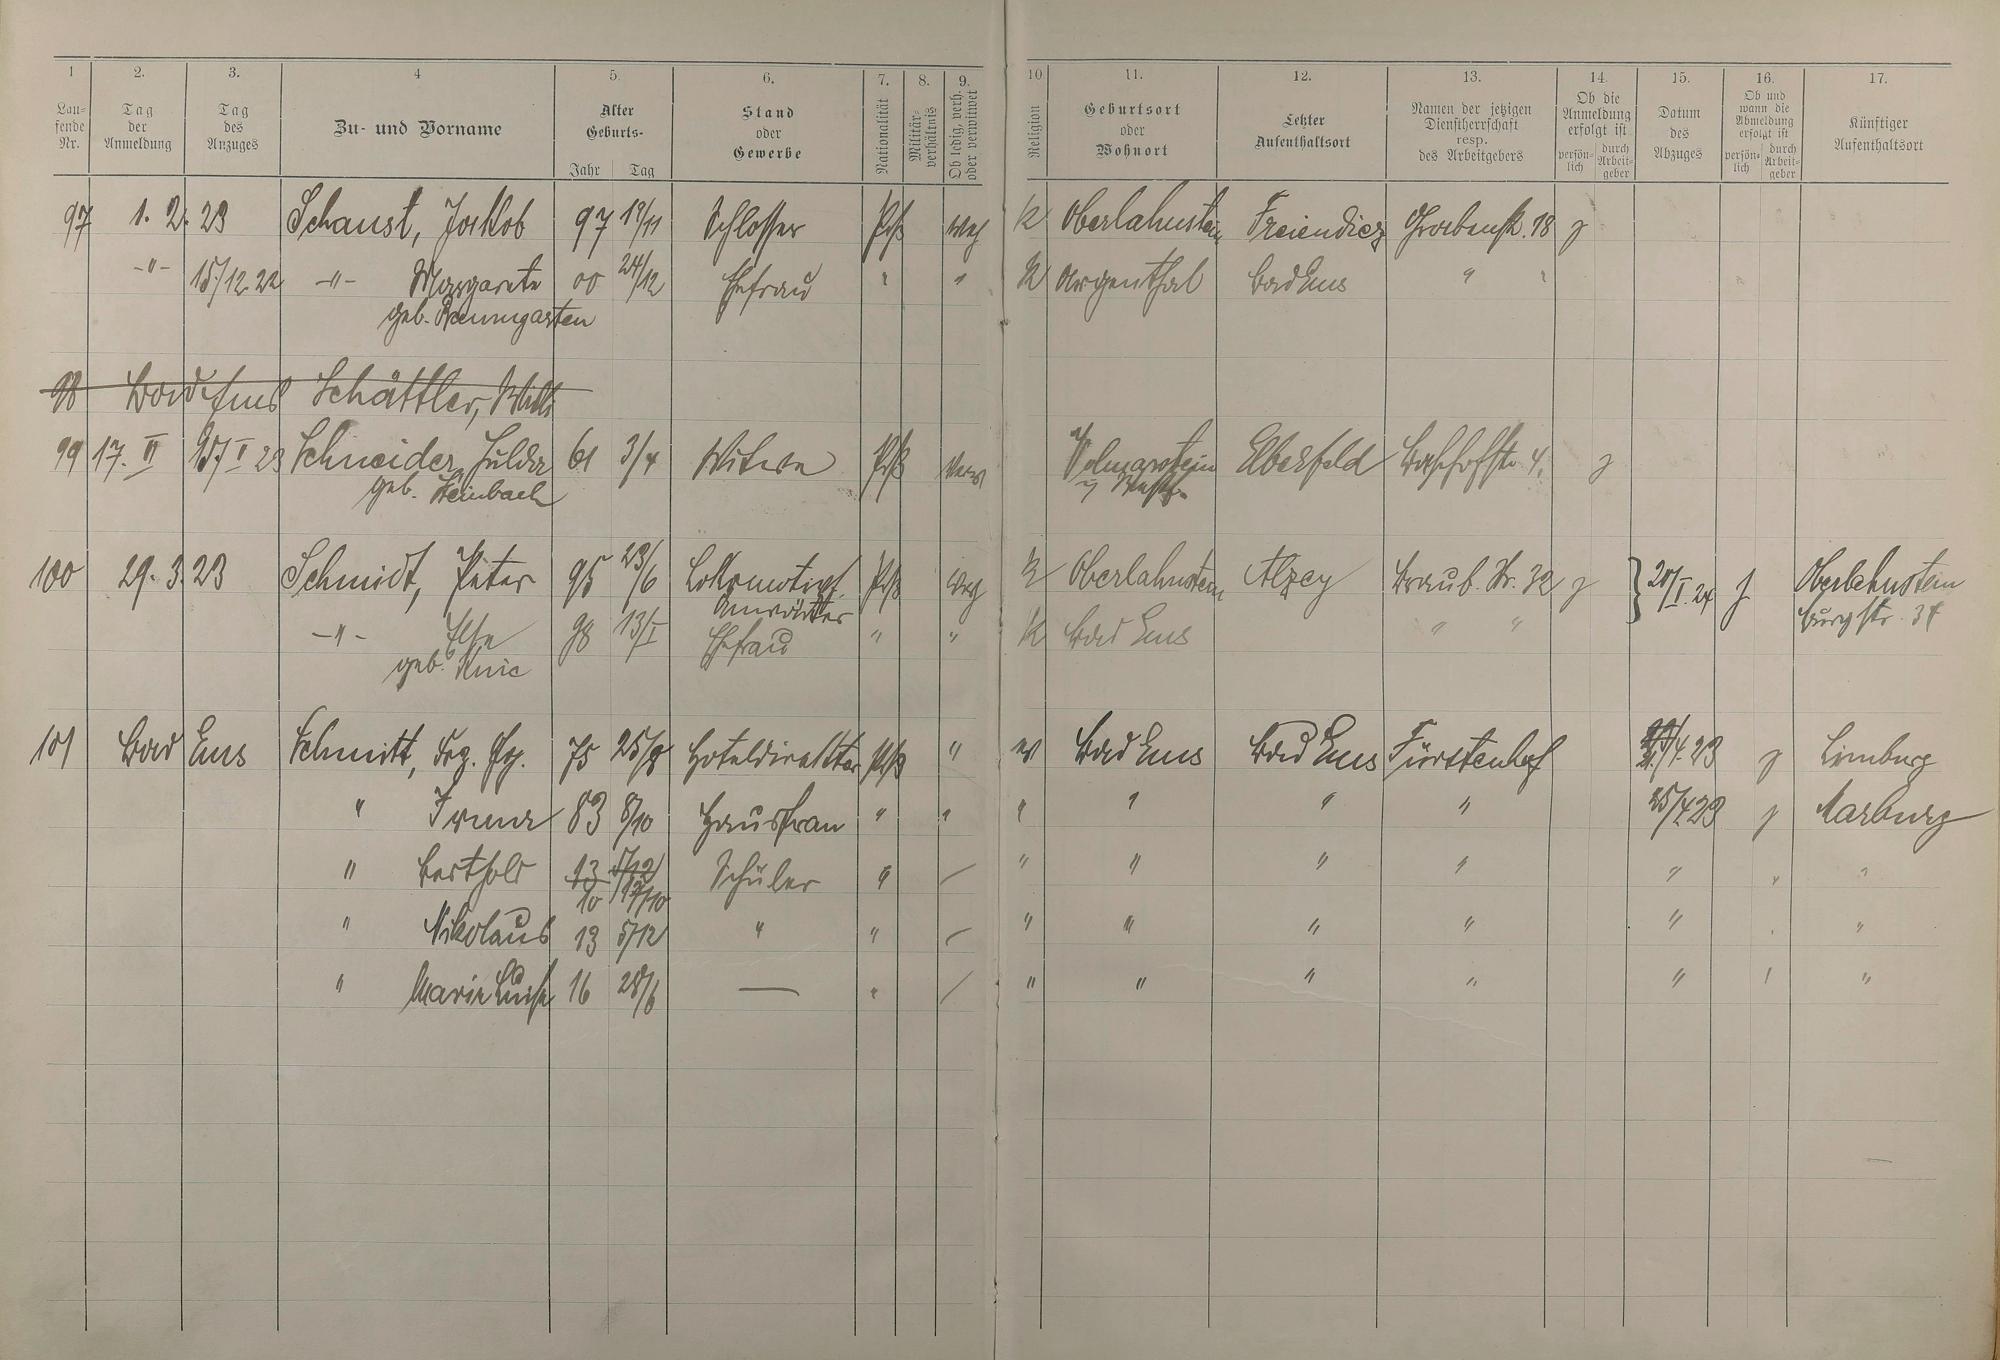 1 2. 3. 4 5. 6. 7. 8. 9. 10 11. 12. 13. 14. 15. 16. 17.
Lau-
fende
Nr.
Tag
der
Anmeldung
Tag
des
Anzuges
Zu- und Vorname
Alter
Geburts-
Jahr Tag
Stand
oder
Gewerbe
Nationalität
Militär-
verhältnis
Ob ledig, verh.
oder verwitwet
Religion
Geburtsort
oder
Wohnort
Letzter
Aufenthaltsort
Namen der jetzigen
Dienstherrschaft
resp.
des Arbeitgebers
Ob die
Anmeldung
erfolgt ist
persön-
lich
durch
Arbeit-
geber
Datum
des
Abzuges
Ob und
wann die
Abmeldung
erfolgt ist
persön-
lich
durch
Arbeit-
geber
Künftiger
Aufenthaltsort
97 1. 2. 23 Schaust, Jakob 97 19/11 Schlosser Prß K Oberlahnstein Freiendiez Grabenstr. 18 j
-"- 15/12.22 -"- Margarete 00 24/12 Ehefrau " " K Argenthal Bad Ems " "
geb. Baumgarten
98 Bad Ems Schättler, Willi
99 17. II 15. II 23 Schneider, Hulda 61 3/4 Witwe Prß verw Volmarstein Elberfeld Bahnhofstr. 4. j
geb. Steinbach
100 29. 3. 23 Schmidt, Peter 95 23/6 Lokomotivf. Prß K Oberlahnstein Alzey Braub. Str. 32 j } 20/I. 24 j Oberlahnstein
Anwärter Burgstr. 34
-"- Else 98 13/I Ehefrau " " K Bad Ems " "
geb.
101 Bad Ems Schmitt, Frz. 75 25/8 Hoteldirektor Prß " ev Bad Ems Bad Ems Fürstenhof /4. 23 j Limburg
" Irma 83 8/10 Hausfrau " " " " " " 25/4 23 j Marburg
" Berthold 13 5/12 Schüler " — " " " " " " "
10 12/10
" Nikolaus 13 5/12 " " — " " " " " " "
" Marie Luise 16 28/6 — " — " " " " " " "